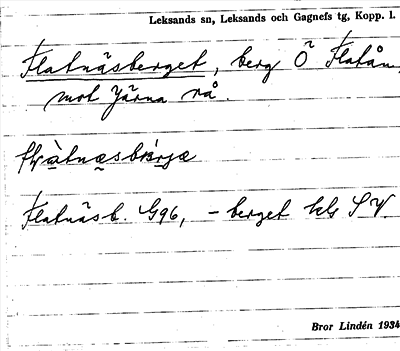 Leksands sn, Leksands och Gagnefs tg, Kopp. l.
Flatnäsberget, berg Ö Flatån,
mot Järna rå.
Flatnäsb. G96, – berget kls SV
Bror Lindén 1934